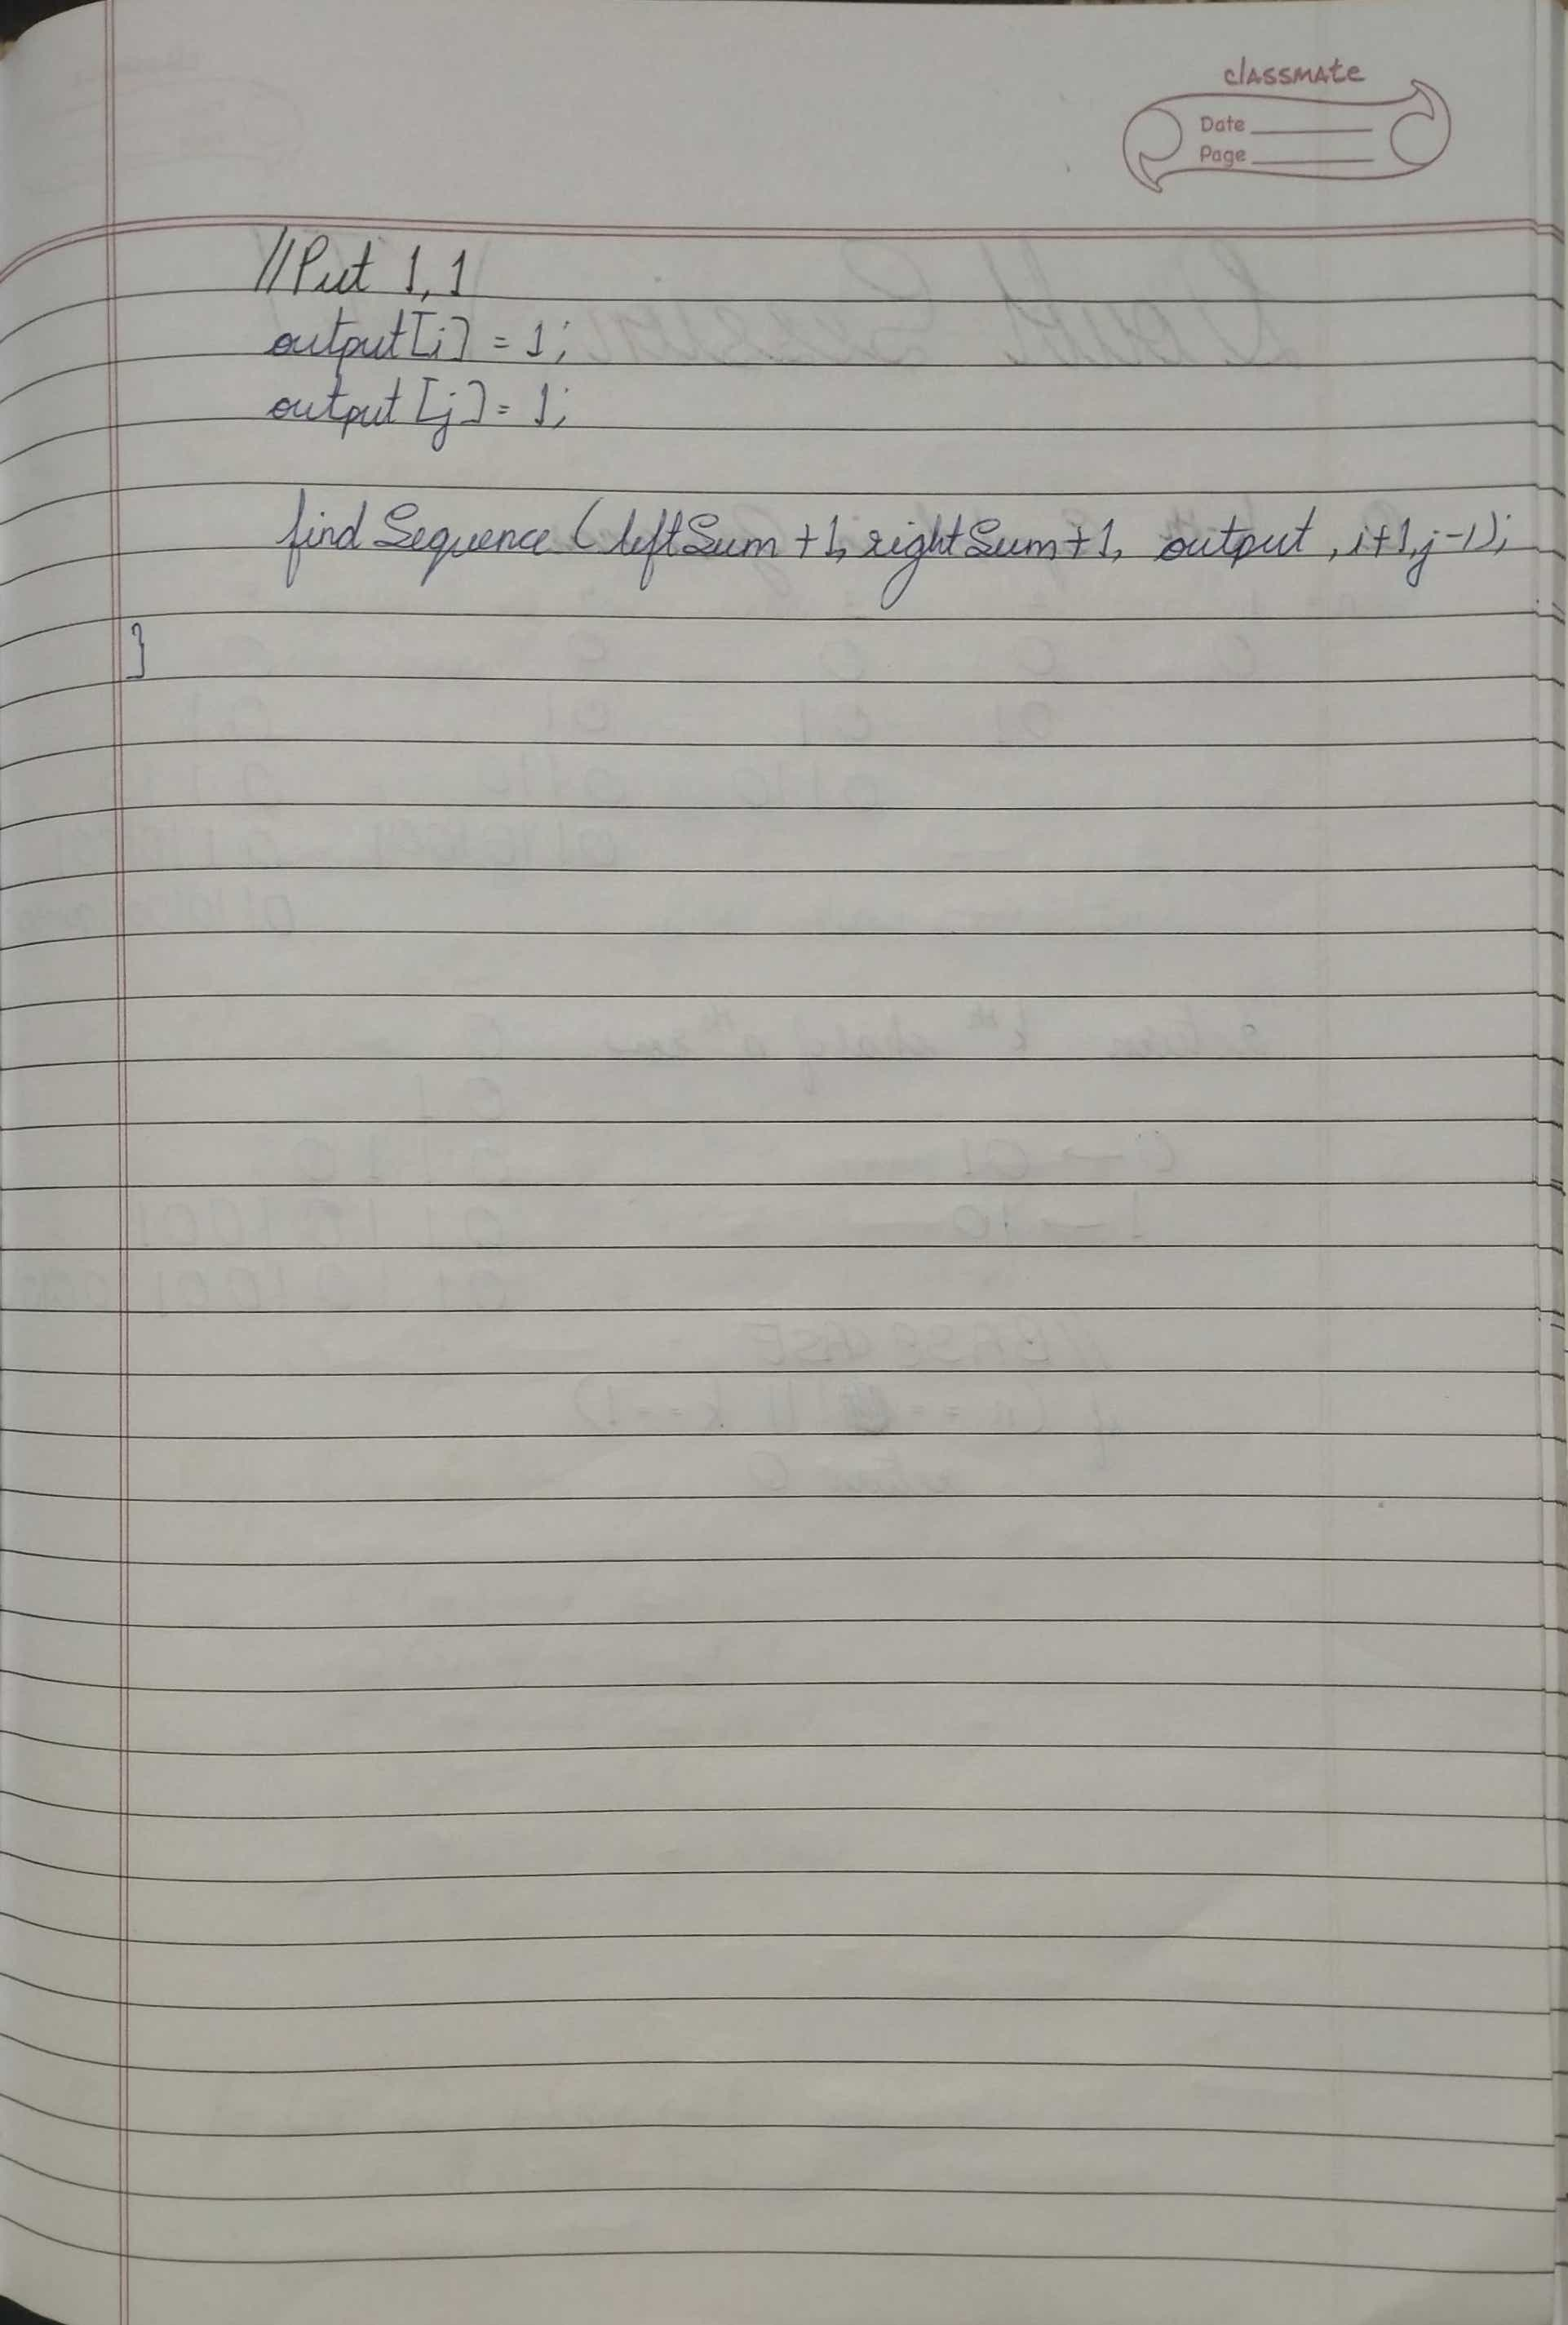 classmate
Date
Page
//Put 1, 1
output[i] = 1;
output[j] = 1;
findSequence (leftSum+1, rightSum+1, output, i+1, j-1);
}